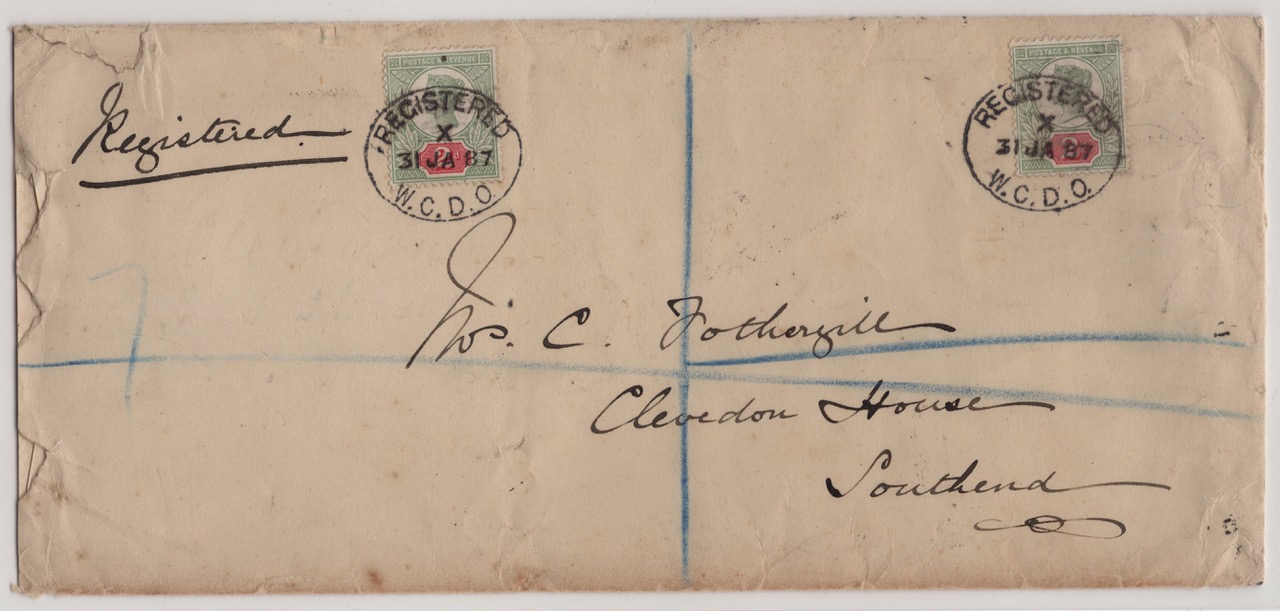 Registered
POSTAGE & REVENUE
REGISTERED
X
31 JA 87
W.C.D.O.
2d
POSTAGE & REVENUE
REGISTERED
X
31 JA 87
W.C.D.O.
7
Mrs. C. Fothergill
Clevedon House
Southend